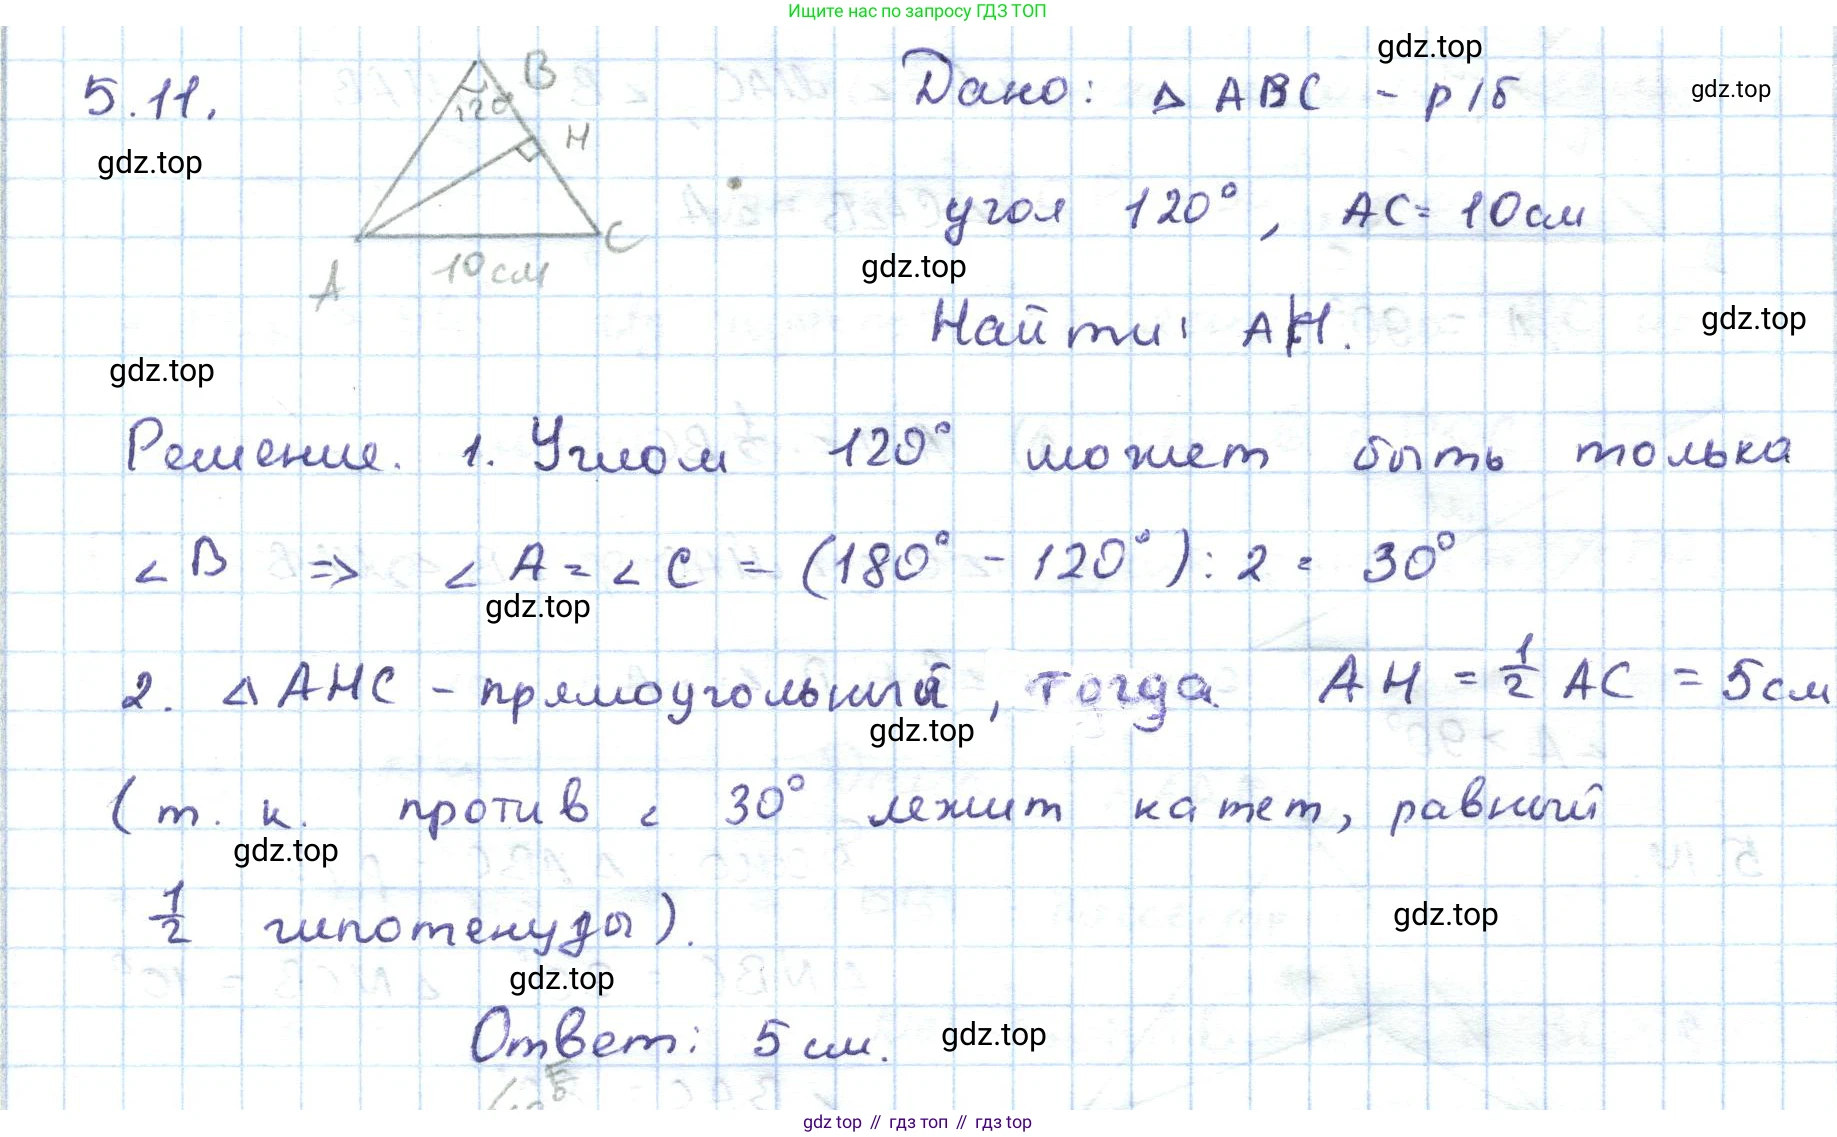 Ищите нас по запросу ГДЗ ТОП
5.11.
B
120°
H
A
10 см
C
Дано: △ ABC - р/б
угол 120°, AC = 10 см
Найти: AH.
Решение. 1. Углом 120° может быть только
∠B => ∠A = ∠C = (180° - 120°) : 2 = 30°
2. △ AHC - прямоугольный, тогда AH = 1/2 AC = 5 см
(т. к. против ∠ 30° лежит катет, равный
1/2 гипотенузы).
Ответ: 5 см.
gdz.top
gdz.top
gdz.top
gdz.top
gdz.top
gdz.top
gdz.top
gdz.top
gdz.top
gdz.top
gdz.top
gdz.top
gdz top // гдз топ // гдз top